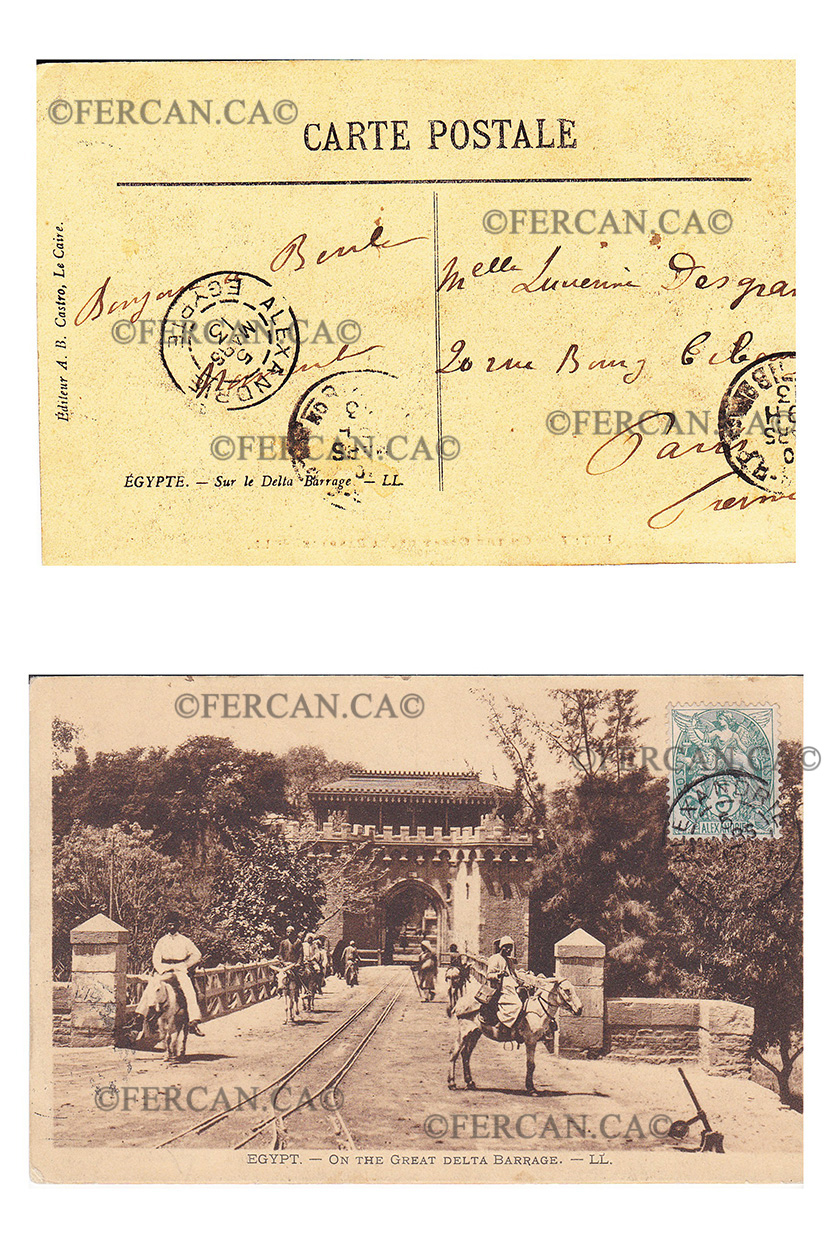 ©FERCAN.CA©
CARTE POSTALE
©FERCAN.CA©
Éditeur A. B. Castro, Le Caire.
Bonjour Berthe
Melle Desgran
ALEXANDRIE
EGYPTE
5
MARS
13
©FERCAN.CA©
20 rue Bourg
©FERCAN.CA©
©FERCAN.CA©
Paris
ÉGYPTE. — Sur le Delta Barrage — LL.
©FERCAN.CA©
©FERCAN.CA©
ALEXANDRIE
©FERCAN.CA©
©FERCAN.CA©
EGYPT. — ON THE GREAT DELTA BARRAGE. — LL.